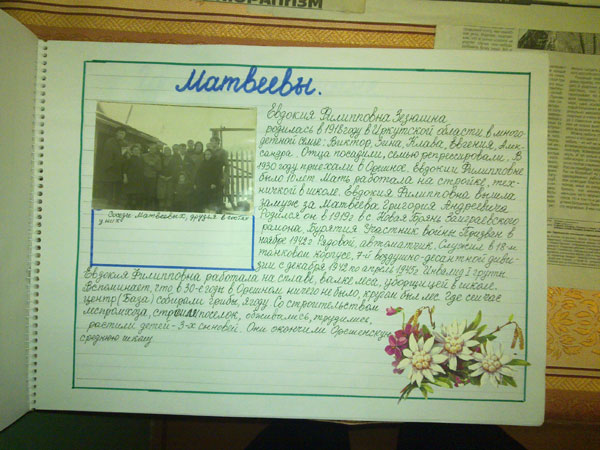 Матвеевы.
Евдокия Филипповна Зезюшна
родилась в 1918 году в Иркутской области в много-
детной семье: Виктор, Зина, Клава, Евгения, Алек-
сандра. Отца посадили, семью репрессировали. В
1930 году приехали в Орешное. Евдокии Филипповне
было 12 лет. Мать работала на стройке, тех-
ничкой в школе. Евдокия Филипповна вышла
замуж за Матвеева Григория Андреевича
Родился он в 1919 г в с. Новая Брянь Заиграевского
района, Бурятия Участник войны Призван в
ноябре 1942 г Рядовой, автоматчик. Служил в 18-м
танковом корпусе, 7-й воздушно-десантной диви-
зии с декабря 1942 по апрель 1945 г. Инвалид I группы
Матвеевых, друзья, в гостях
у них
Евдокия Филипповна работала на сплаве, валке леса, уборщицей в школе.
Вспоминает, что в 30-е годы в Орешном ничего не было, кругом был лес. Где сейчас
центр (База) собирали грибы, ягоду Со строительством
леспромхоза, строился поселок, обживались, трудились,
растили детей - 3-х сыновей. Они окончили Орешенскую
среднюю школу